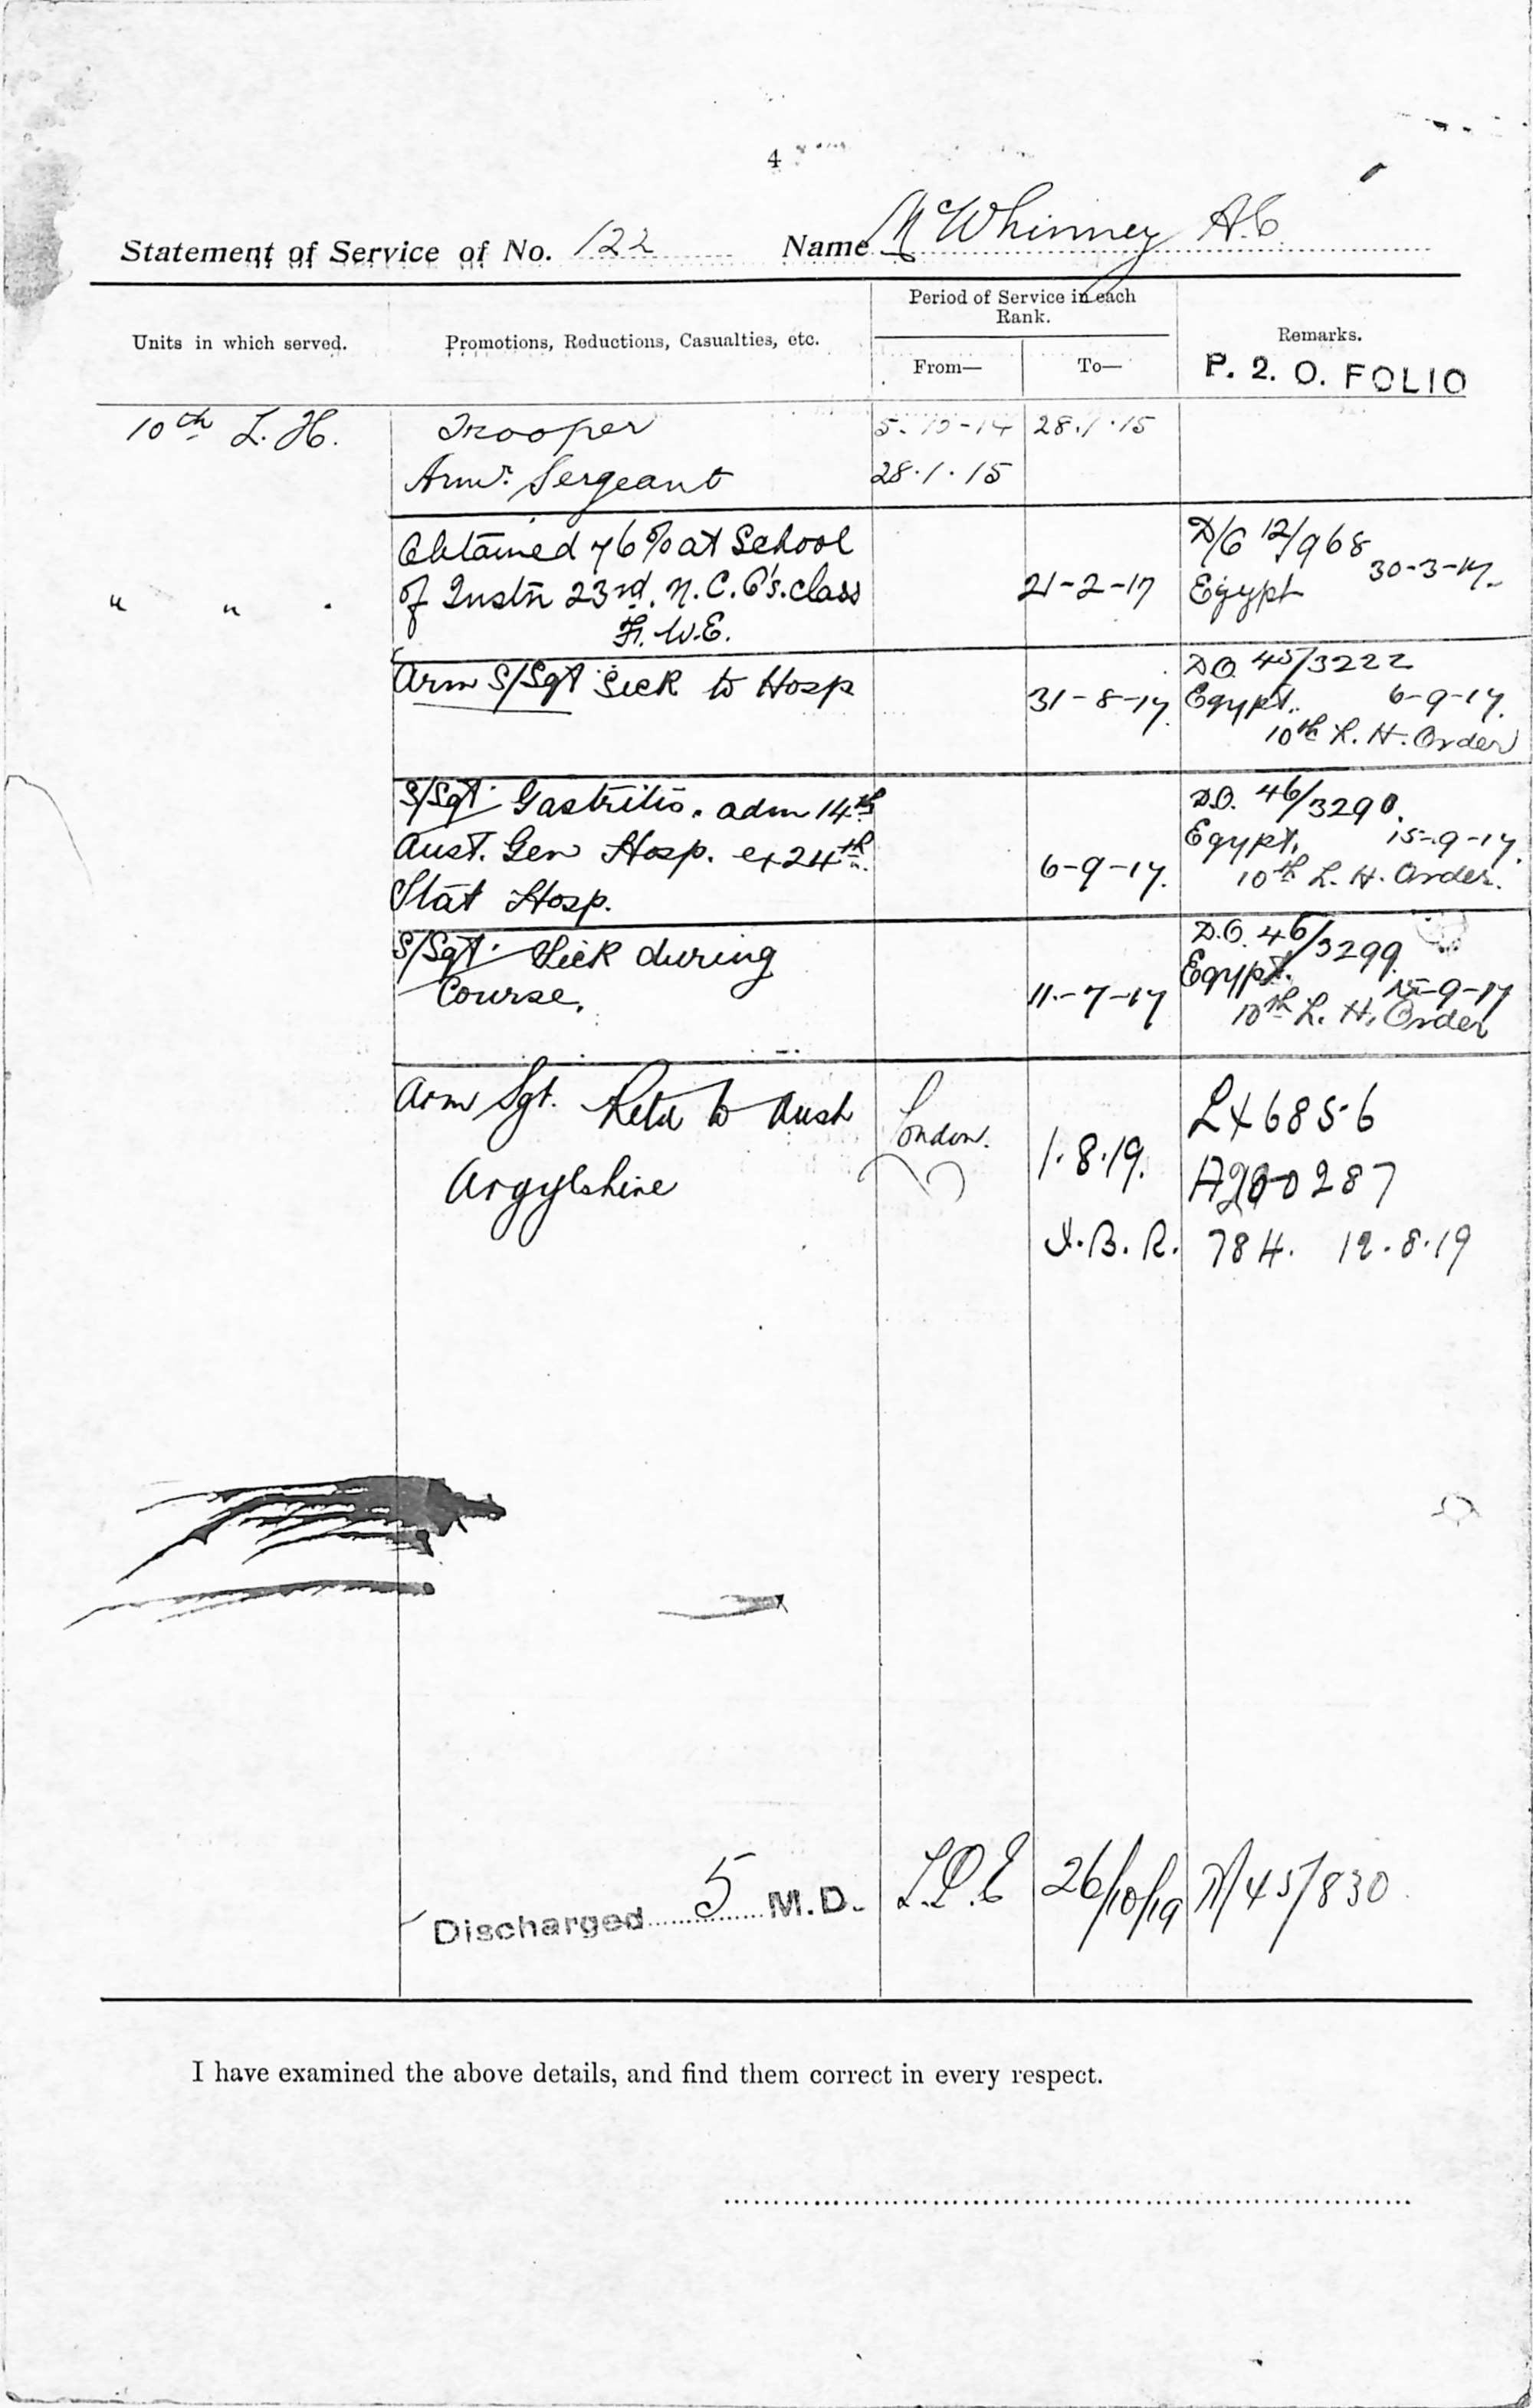 4
Statement of Service of No. 122 Name McWhinney A.C.
Units in which served.
Promotions, Reductions, Casualties, etc.
Period of Service in each
Rank.
From—
To—
Remarks.
P. 2. O. FOLIO
10th L. H. Trooper 5-10-14 28.1.15
Armr. Sergeant 28.1.15
Obtained 76% at School D/O 12/968
of Instn 23rd. N.C.O's. class 21-2-17 Egypt 30-3-17.
" " . F. W.E.
Arm S/Sgt Sick to Hosp 31-8-17. D.O. 45/3222
Egypt. 6-9-17.
10th L. H. Order
S/Sgt Gastritis. adm 14th D.O. 46/3290.
Aust. Gen Hosp. ex 24th. 6-9-17. Egypt. 15-9-17.
Stat Hosp. 10th L. H. Order.
S/Sgt. Sick during D.O. 46/3299.
Course. 11-7-17 Egypt. 15-9-17
10th L. H. Order
Arm Sgt. Retd to Aust London. 1.8.19. L+6856
Argylshire 287
I.B.R. 784. 12.8.19
Discharged 5 M.D. 26/10/19 45/830
I have examined the above details, and find them correct in every respect.